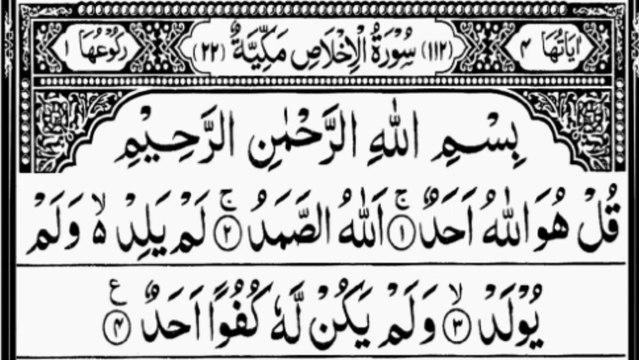 اٰيَاتُهَا ٤ (١١٢) سُوْرَةُ الْاِخْلَاصِ مَكِّيَّةٌ (٢٢) رُكُوْعُهَا ١
بِسْمِ اللّٰهِ الرَّحْمٰنِ الرَّحِيْمِ
قُلْ هُوَ اللّٰهُ اَحَدٌ ۚ ﴿١﴾ اَللّٰهُ الصَّمَدُ ۚ ﴿٢﴾ لَمْ يَلِدْ ۙ۬ وَلَمْ
يُوْلَدْ ۙ ﴿٣﴾ وَلَمْ يَكُنْ لَّهٗ كُفُوًا اَحَدٌ ﴿٤﴾ ع